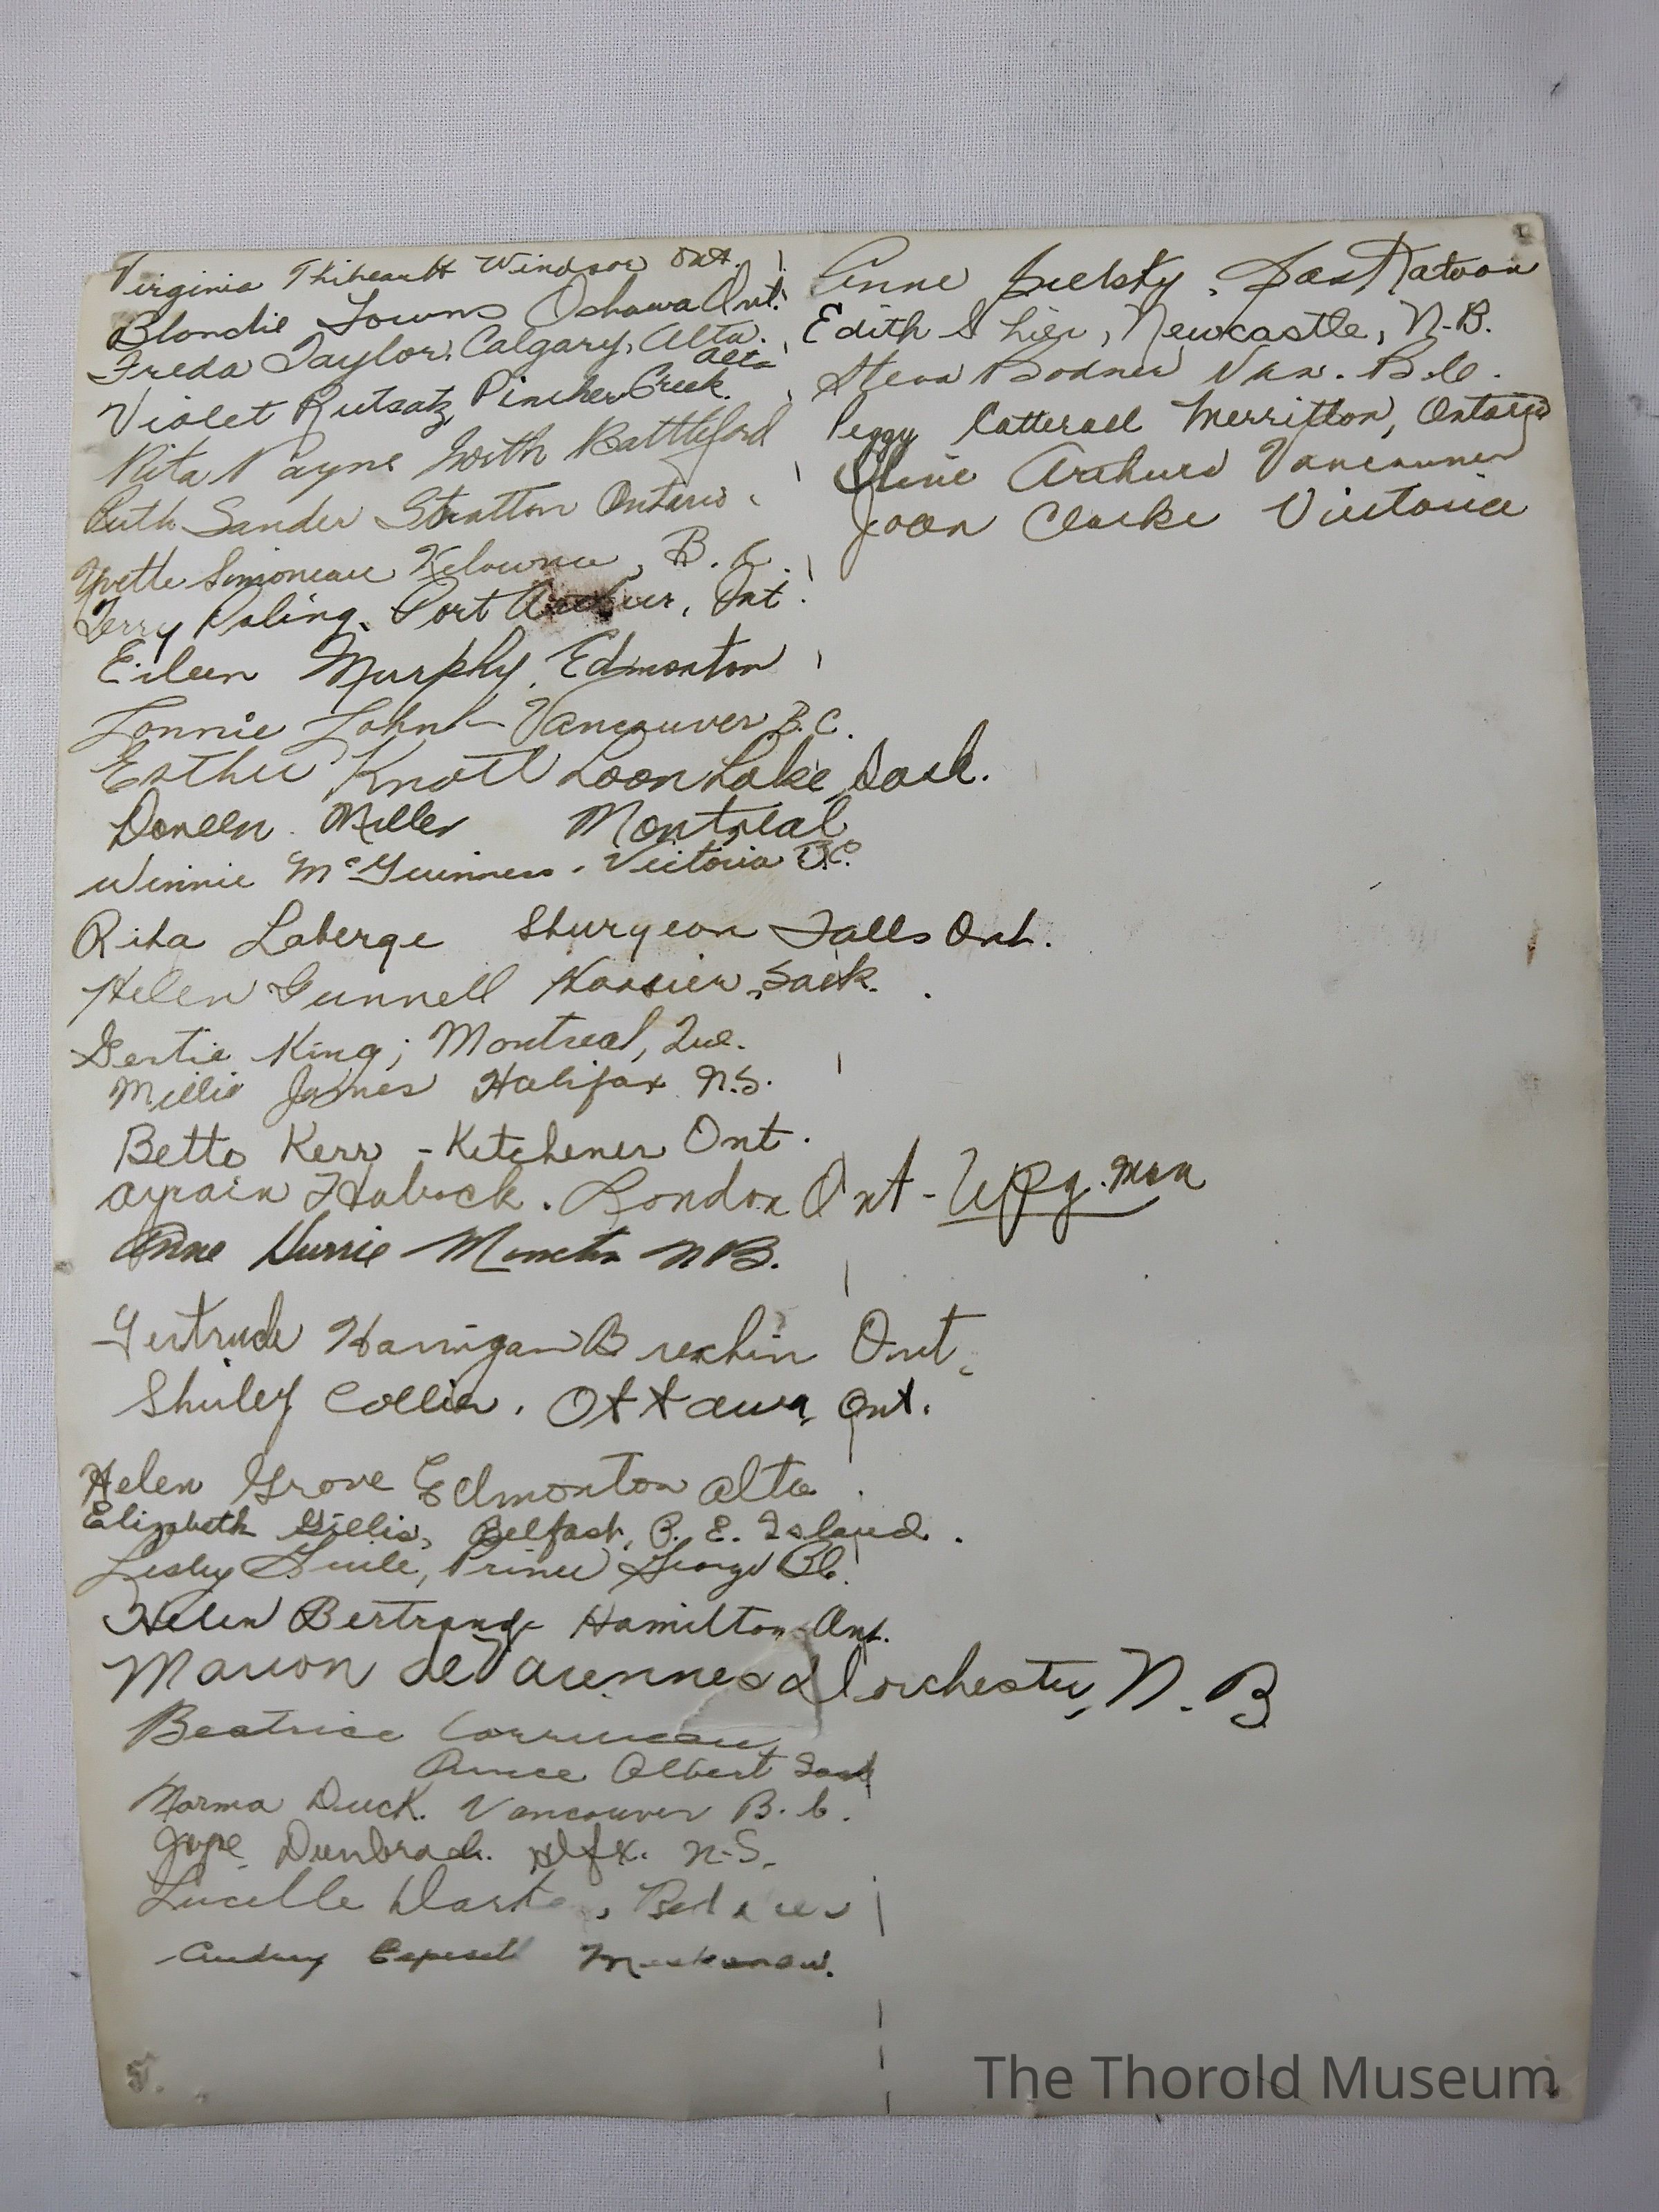 Virginia Thibeault Windsor Ont.
Blondie Towns Oshawa Ont.
Freda Taylor, Calgary, Alta.
Alta
Violet Rutsatz, Pincher Creek.
Rita Payne North Battleford
Ruth Sander Stratton Ontario.
Yvette Simoneau Kelowna, B.C.
Terry Poling, Port Arthur, Ont.
Eileen Murphy, Edmonton
Lonnie Lohnt - Vancouver B.C.
Esther Knott Loon Lake, Sask.
Doreen Miller Montreal
Winnie McGuinness. Victoria B.C.
Rita Laberge Sturgeon Falls Ont.
Helen Gunnell Sask.
Gertie King; Montreal, Que.
Millie James Halifax N.S.
Bette Kerr - Kitchener Ont.
London Ont - Wpg. Man
Anne Moncton N.B.
Gertrude Harrigan Brechin Ont.
Shirley Collier, Ottawa, Ont.
Helen Grove Edmonton Alta.
Elizabeth Gillis, Belfast, P. E. Island.
Lesley Prince George BC.
Helen Bertrand - Hamilton - Ont.
Marion deVarennes Dorchester, N.B
Beatrice
Prince Albert Sask
Norma Duck. Vancouver B.C.
Dunbrack. Hlfx. N.S.
Lucelle
Audrey
5.
Anne Saskatoon
Edith Shier, Newcastle, N.B.
Bodner Van. B.C.
Peggy Catterall Merritton, Ontario
Olive Vancouver
Joan Clarke Victoria
The Thorold Museum